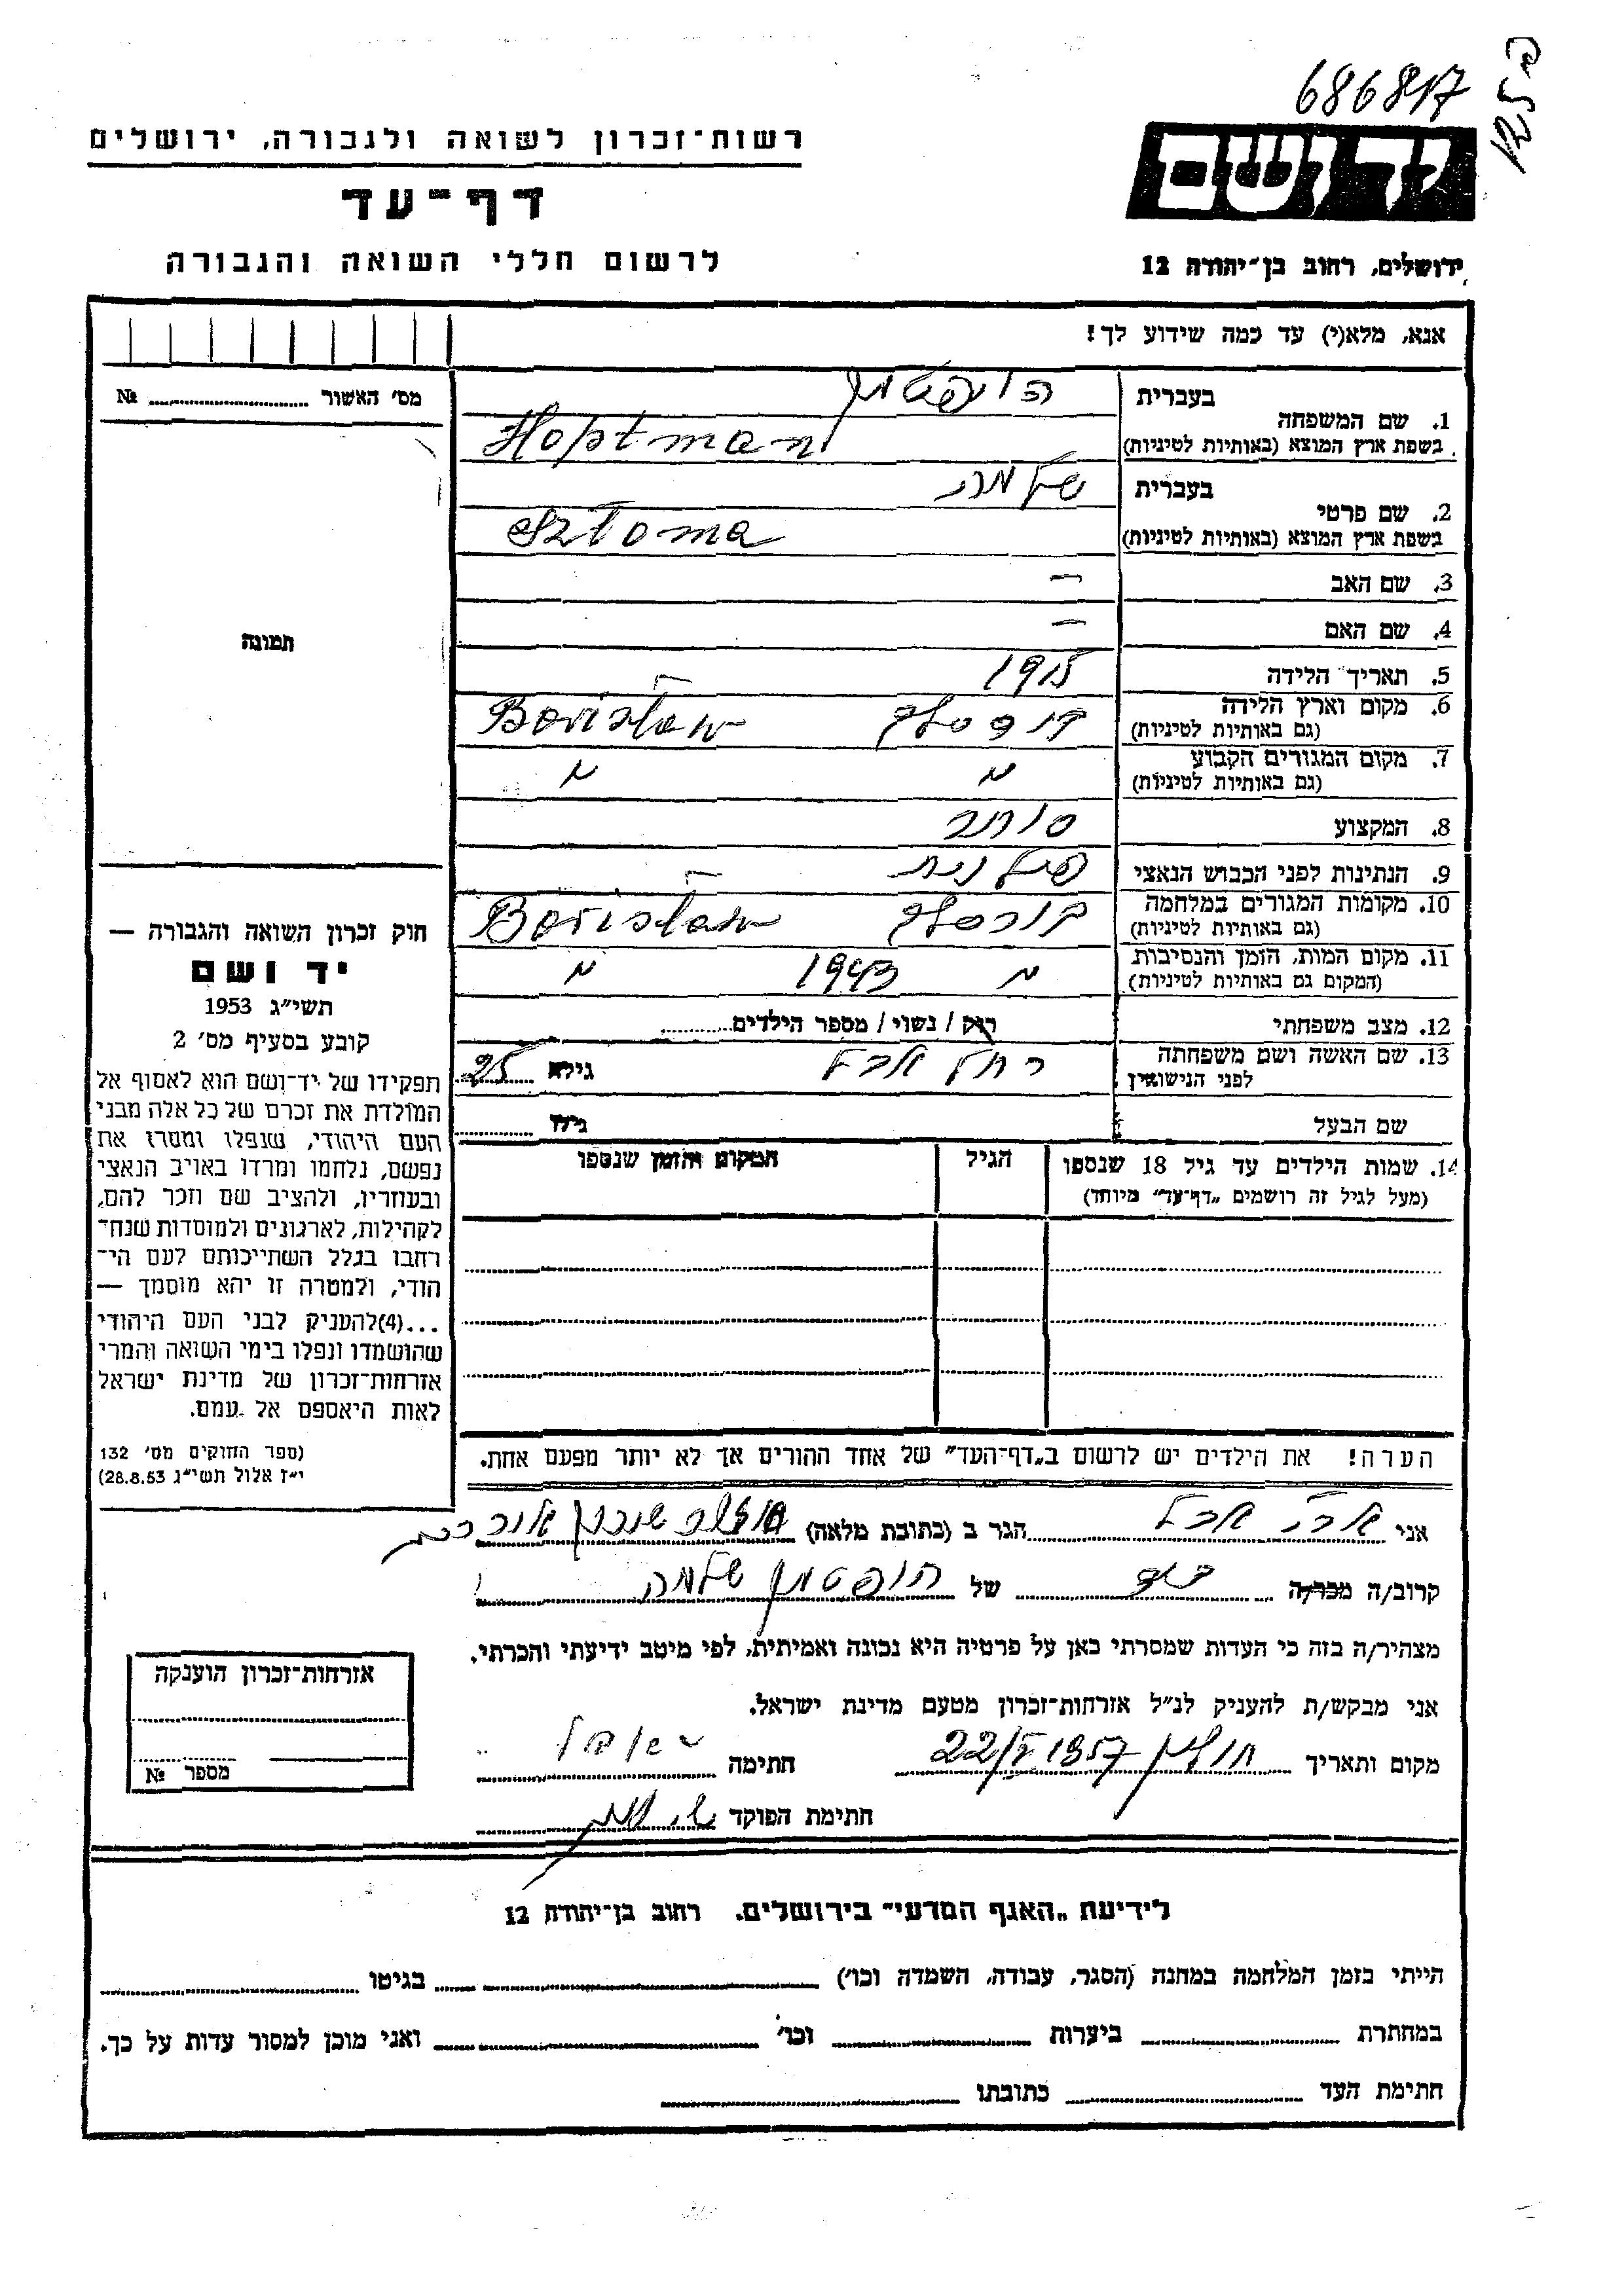 686817
125
רשות־זכרון לשואה ולגבורה, ירושלים
יד ושם
דף־עד
לרשום חללי השואה והגבורה
ירושלים, רחוב בן־יהודה 12
אנא, מלא(י) עד כמה שידוע לך!
מס׳ האשור № 
תמונה
1. שם המשפחה בעברית הופטמן
בשפת ארץ המוצא (באותיות לטיניות) Hoptman
2. שם פרטי בעברית שלמה
בשפת ארץ המוצא (באותיות לטיניות) Szloma
3. שם האב —
4. שם האם —
5. תאריך הלידה 1915
6. מקום וארץ הלידה
(גם באותיות לטיניות) בורסלב Borisław
7. מקום המגורים הקבוע
(גם באותיות לטיניות) " "
8. המקצוע סוחר
9. הנתינות לפני הכבוש הנאצי פולנית
10. מקומות המגורים במלחמה
(גם באותיות לטיניות) בורסלב Borisław
11. מקום המות, הזמן והנסיבות
(המקום גם באותיות לטיניות) " 1943 "
12. מצב משפחתי רוק / נשוי / מספר הילדים
13. שם האשה ושם משפחתה
לפני הנישואין רחל אבל גילה 25
שם הבעל גילו
14. שמות הילדים עד גיל 18 שנספו הגיל המקום והזמן שנספו
(מעל לגיל זה רושמים „דף־עד" מיוחד)
הערה! את הילדים יש לרשום ב„דף־העד" של אחד ההורים אך לא יותר מפעם אחת.
חוק זכרון השואה והגבורה —
יד ושם
תשי״ג 1953
קובע בסעיף מס׳ 2
תפקידו של יד־ושם הוא לאסוף אל
המולדת את זכרם של כל אלה מבני
העם היהודי, שנפלו ומסרו את
נפשם, נלחמו ומרדו באויב הנאצי
ובעוזריו, ולהציב שם וזכר להם,
לקהילות, לארגונים ולמוסדות שנח־
רבו בגלל השתייכותם לעם הי־
הודי, ולמטרה זו יהא מוסמך —
...(4)להעניק לבני העם היהודי
שהושמדו ונפלו בימי השואה והמרי
אזרחות־זכרון של מדינת ישראל
לאות היאספם אל עמם.
(ספר החוקים מס׳ 132
י״ז אלול תשי״ג 28.8.53)
אני אבל הגר ב (כתובת מלאה) שכון
קרוב/ה מכר/ה של הופטמן שלמה
מצהיר/ה בזה כי העדות שמסרתי כאן על פרטיה היא נכונה ואמיתית, לפי מיטב ידיעתי והכרתי.
אני מבקש/ת להעניק לנ״ל אזרחות־זכרון מטעם מדינת ישראל.
מקום ותאריך חולון 22/V 1957 חתימה
חתימת הפוקד
אזרחות־זכרון הוענקה
מספר №
לידיעת „האגף המדעי" בירושלים, רחוב בן־יהודה 12
הייתי בזמן המלחמה במחנה (הסגר, עבודה, השמדה וכו׳) בגיטו
במחתרת ביערות וכו׳ ואני מוכן למסור עדות על כך.
חתימת העד כתובתו